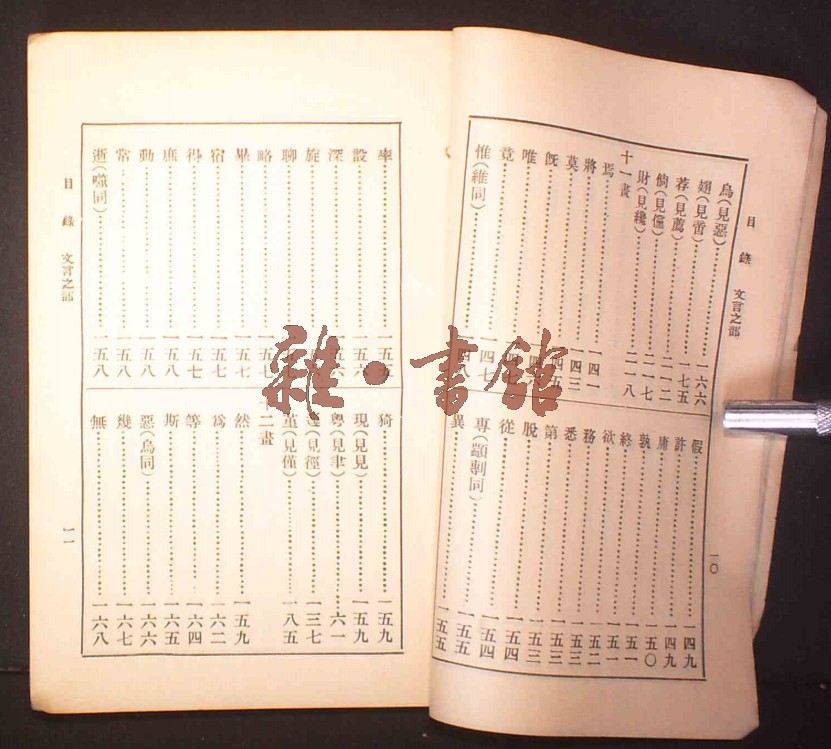 目錄 文言之部
烏(見惡)一六六
翅(見啻)一七五
荐(見薦)二一二
倘(見儻)二一七
財(見纔)二一八
十一畫
焉一四一
將一四三
莫一四五
既
唯
竟一四七
惟(維同)一四八
假一四九
許一四九
庸一五〇
孰一五一
終一五一
欲一五二
務一五三
悉一五三
第一五三
脫一五四
從一五四
專(顓剸同)一五五
異一五五
一〇
目錄 文言之部
率一五五
設一五六
深一五六
旋
聊
略一五七
畢一五七
宿一五七
得一五八
庶一五八
動一五八
常一五八
逝(噬同)一五八
猗一五九
現(見見)一五九
粵(見聿)六一
逕(見徑)一三七
堇(見僅)一八五
二畫
然一五九
爲一六二
等一六四
斯一六五
惡(烏同)一六六
幾一六七
無一六八
一一
雜·書館